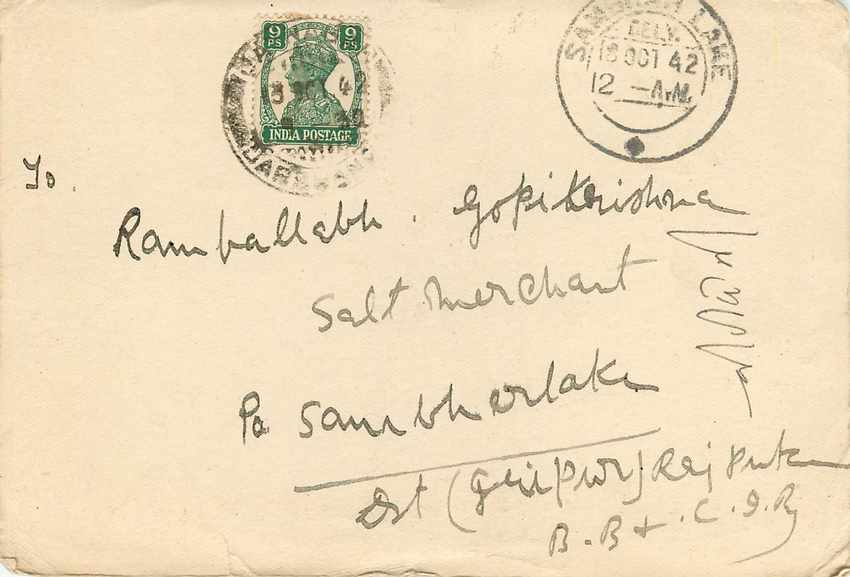 9 PS 9 PS
INDIA POSTAGE
SAMBHAR LAKE
DELY.
18 OCT 42
12 -A.M.
To.
Ramballabh. Gopikrishna
Salt Merchant
Po Sambherlake
Dst (Jeipur) Rajputa
B.B & .C.I.R